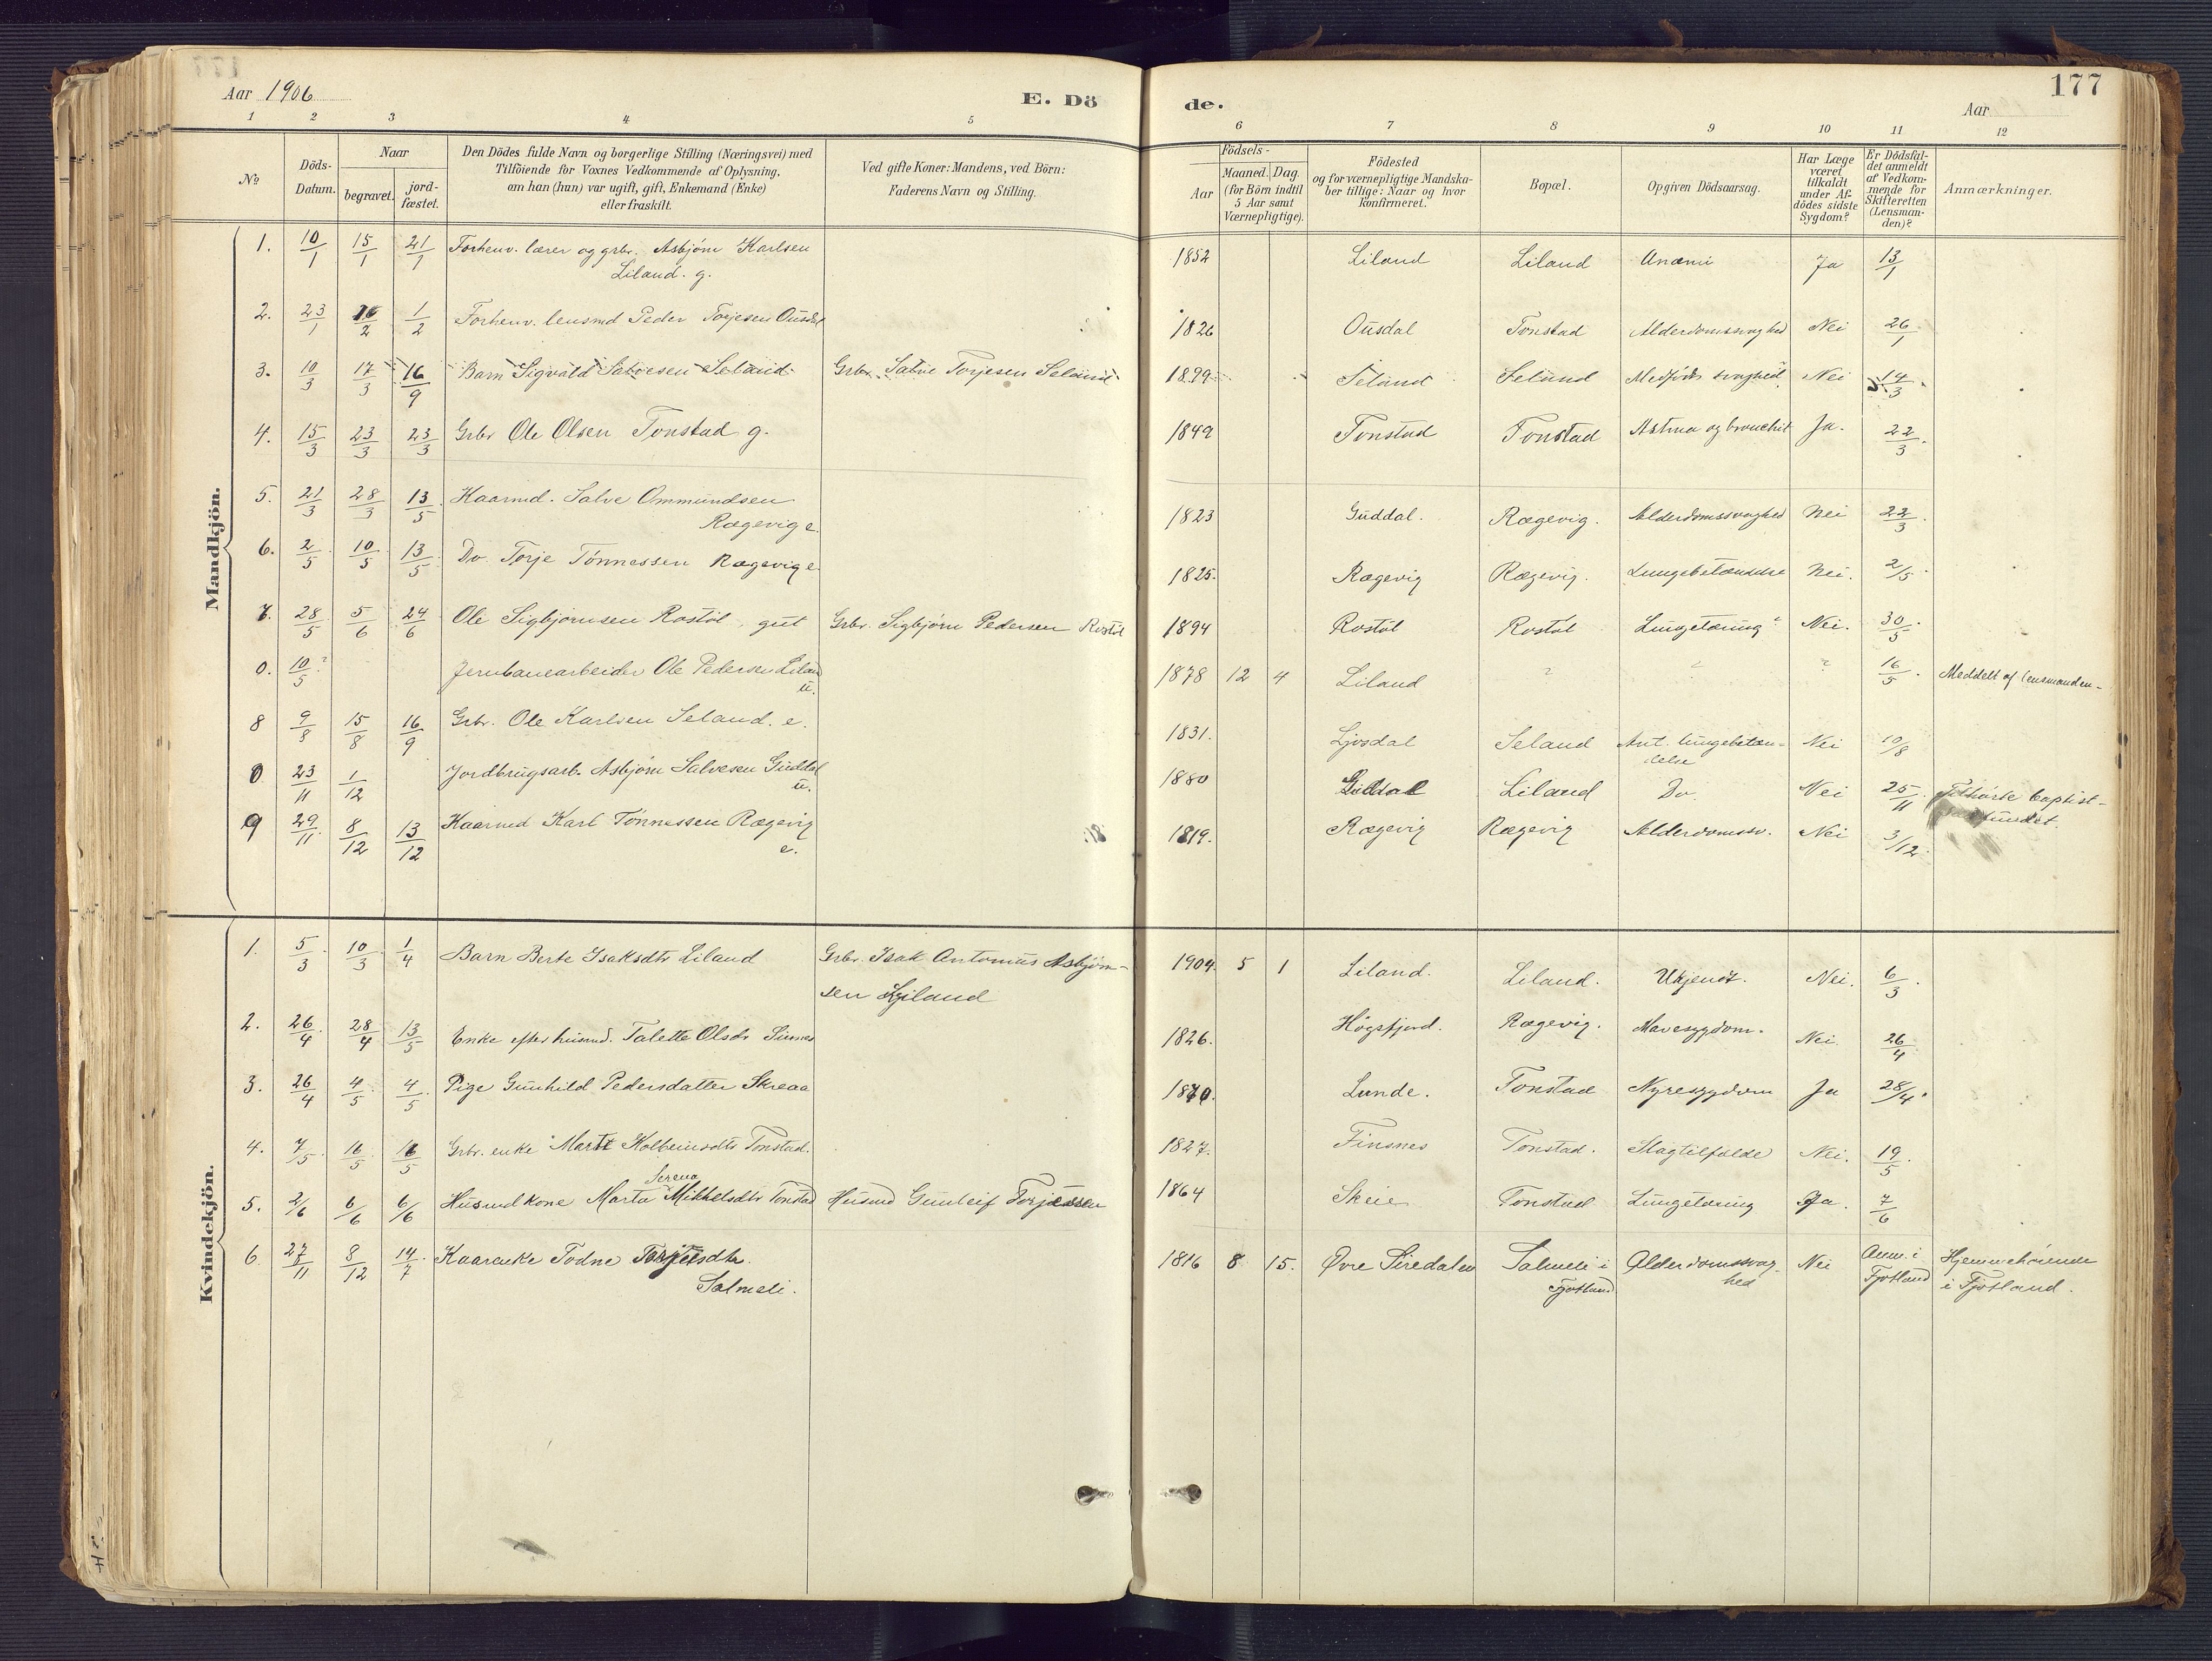 Aar 1906
E. Dö
de.
Aar
177
1 2 3 4 5 6 7 8 9 10 11 12
No
Döds-Datum.
Naar
begravet.
jord-fæstet.
Den Dödes fulde Navn og borgerlige Stilling (Næringsvei) med
Tilföiende for Voxnes Vedkommende af Oplysning,
om han (hun) var ugift, gift, Enkemand (Enke)
eller fraskilt.
Ved gifte Koner: Mandens, ved Börn:
Faderens Navn og Stilling.
Födsels-
Aar
Maaned. Dag.
(for Börn indtil
5 Aar samt
Værnepligtige).
Födested
og for værnepligtige Mandska-
ber tillige: Naar og hvor
Konfirmeret.
Bopæl.
Opgiven Dödsaarsag.
Har Læge
været
tilkaldt
under Af-
dödes sidste
Sygdom?
Er Dödsfal-
det anmeldt
af Vedkom-
mende for
Skifteretten
(Lensman-
den)?
Anmærkninger.
Mandkjön.
1. 10/1 15/1 21/1 Forhenv. lærer og grbr. Asbjørn Karlsen
Liland. g. 1852 Liland Liland Anæmi Ja 13/1
2. 23/1 /2 1/2 Forhenv. lensmd Peder Torjesen Ousdal 1826 Ousdal Tonstad Alderdomssvaghed Nei 26/1
3. 10/3 17/3 16/9 Barn Sigvald Salvesen Seland Grbr. Salve Torjesen Seland 1899 Seland Seland Medfødt svaghed Nei 14/3
4. 15/3 23/3 23/3 Grbr Ole Olsen Tonstad g. 1849 Tonstad Tonstad Astma og bronchit Ja. 22/3
5. 21/3 28/3 13/5 Kaarmd. Salve Ommundsen
Rægevig e. 1823 Guddal. Rægevig. Alderdomssvaghed Nei 22/3
6. 2/5 10/5 13/5 Do Torje Tønnessen Rægevig e 1825. Rægevig Rægevig. Lungebetændelse Nei. 2/5
7. 28/5 5/6 24/6 Ole Sigbjørnsen Rostøl, gut Grbr. Sigbjørn Pedersen Rostøl 1894 Rostøl Rostøl Lungetæring? Nei. 30/5
0. 10/5? Jernbanearbeider Ole Pedersen Liland
u. 1878 12 4 Liland ? ? ? 16/5 Meddelt af lensmanden.
8 9/8 15/8 16/9 Grbr. Ole Karlsen Seland. e. 1831. Ljosdal Seland Ant. lungebetæn-
delse Nei 10/8
0 23/11 1/12 Jordbrugsarb. Asbjørn Salvesen Guddal
u. 1880 Guddal Liland Do. Nei 25/11 Tilhørte baptist-
9 29/11 8/12 13/12 Kaarmd Karl Tønnessen Rægevig
e. 1819. Rægevig Rægevig Alderdomssv. Nei 3/12
Kvindekjön.
1. 5/3 10/3 1/4 Barn Berte Isaksdtr Liland Grbr. Isak Antonius Asbjørn-
sen Liland 1904. 5 1 Liland. Liland. Ukjendt. Nei. 6/3
2. 26/4 28/4 13/5 Enke efter husmd. Talette Olsdr Sinnes 1826. Høgsfjord. Rægevig. Mavesygdom. Nei. 26/4
3. 26/4 4/5 4/5 Pige Gunhild Pedersdatter Skreaa 1870. Lunde. Tonstad Nyresygdom Ja 28/4
4. 7/5 16/5 16/5 Grbr. enke Marte Kolbeinsdtr Tonstad. 1827. Finsnes Tonstad. Slagtilfælde Nei. 19/5
5. 2/6 6/6 6/6 Husmd kone Marta Serena Mikkelsdtr Tonstad Husmd Gunleif Torjessen 1864 Skeie Tonstad Lungetæring Ja. 7/6
6 27/11 8/12 14/7 Kaarenke Todne Torjesdtr.
Salmeli. 1816 8 15. Øvre Siredalen Salmeli i
Fjotland Alderdomssvag-
hed Nei Anm. i
Fjotland Hjemmehørende
i Fjotland.